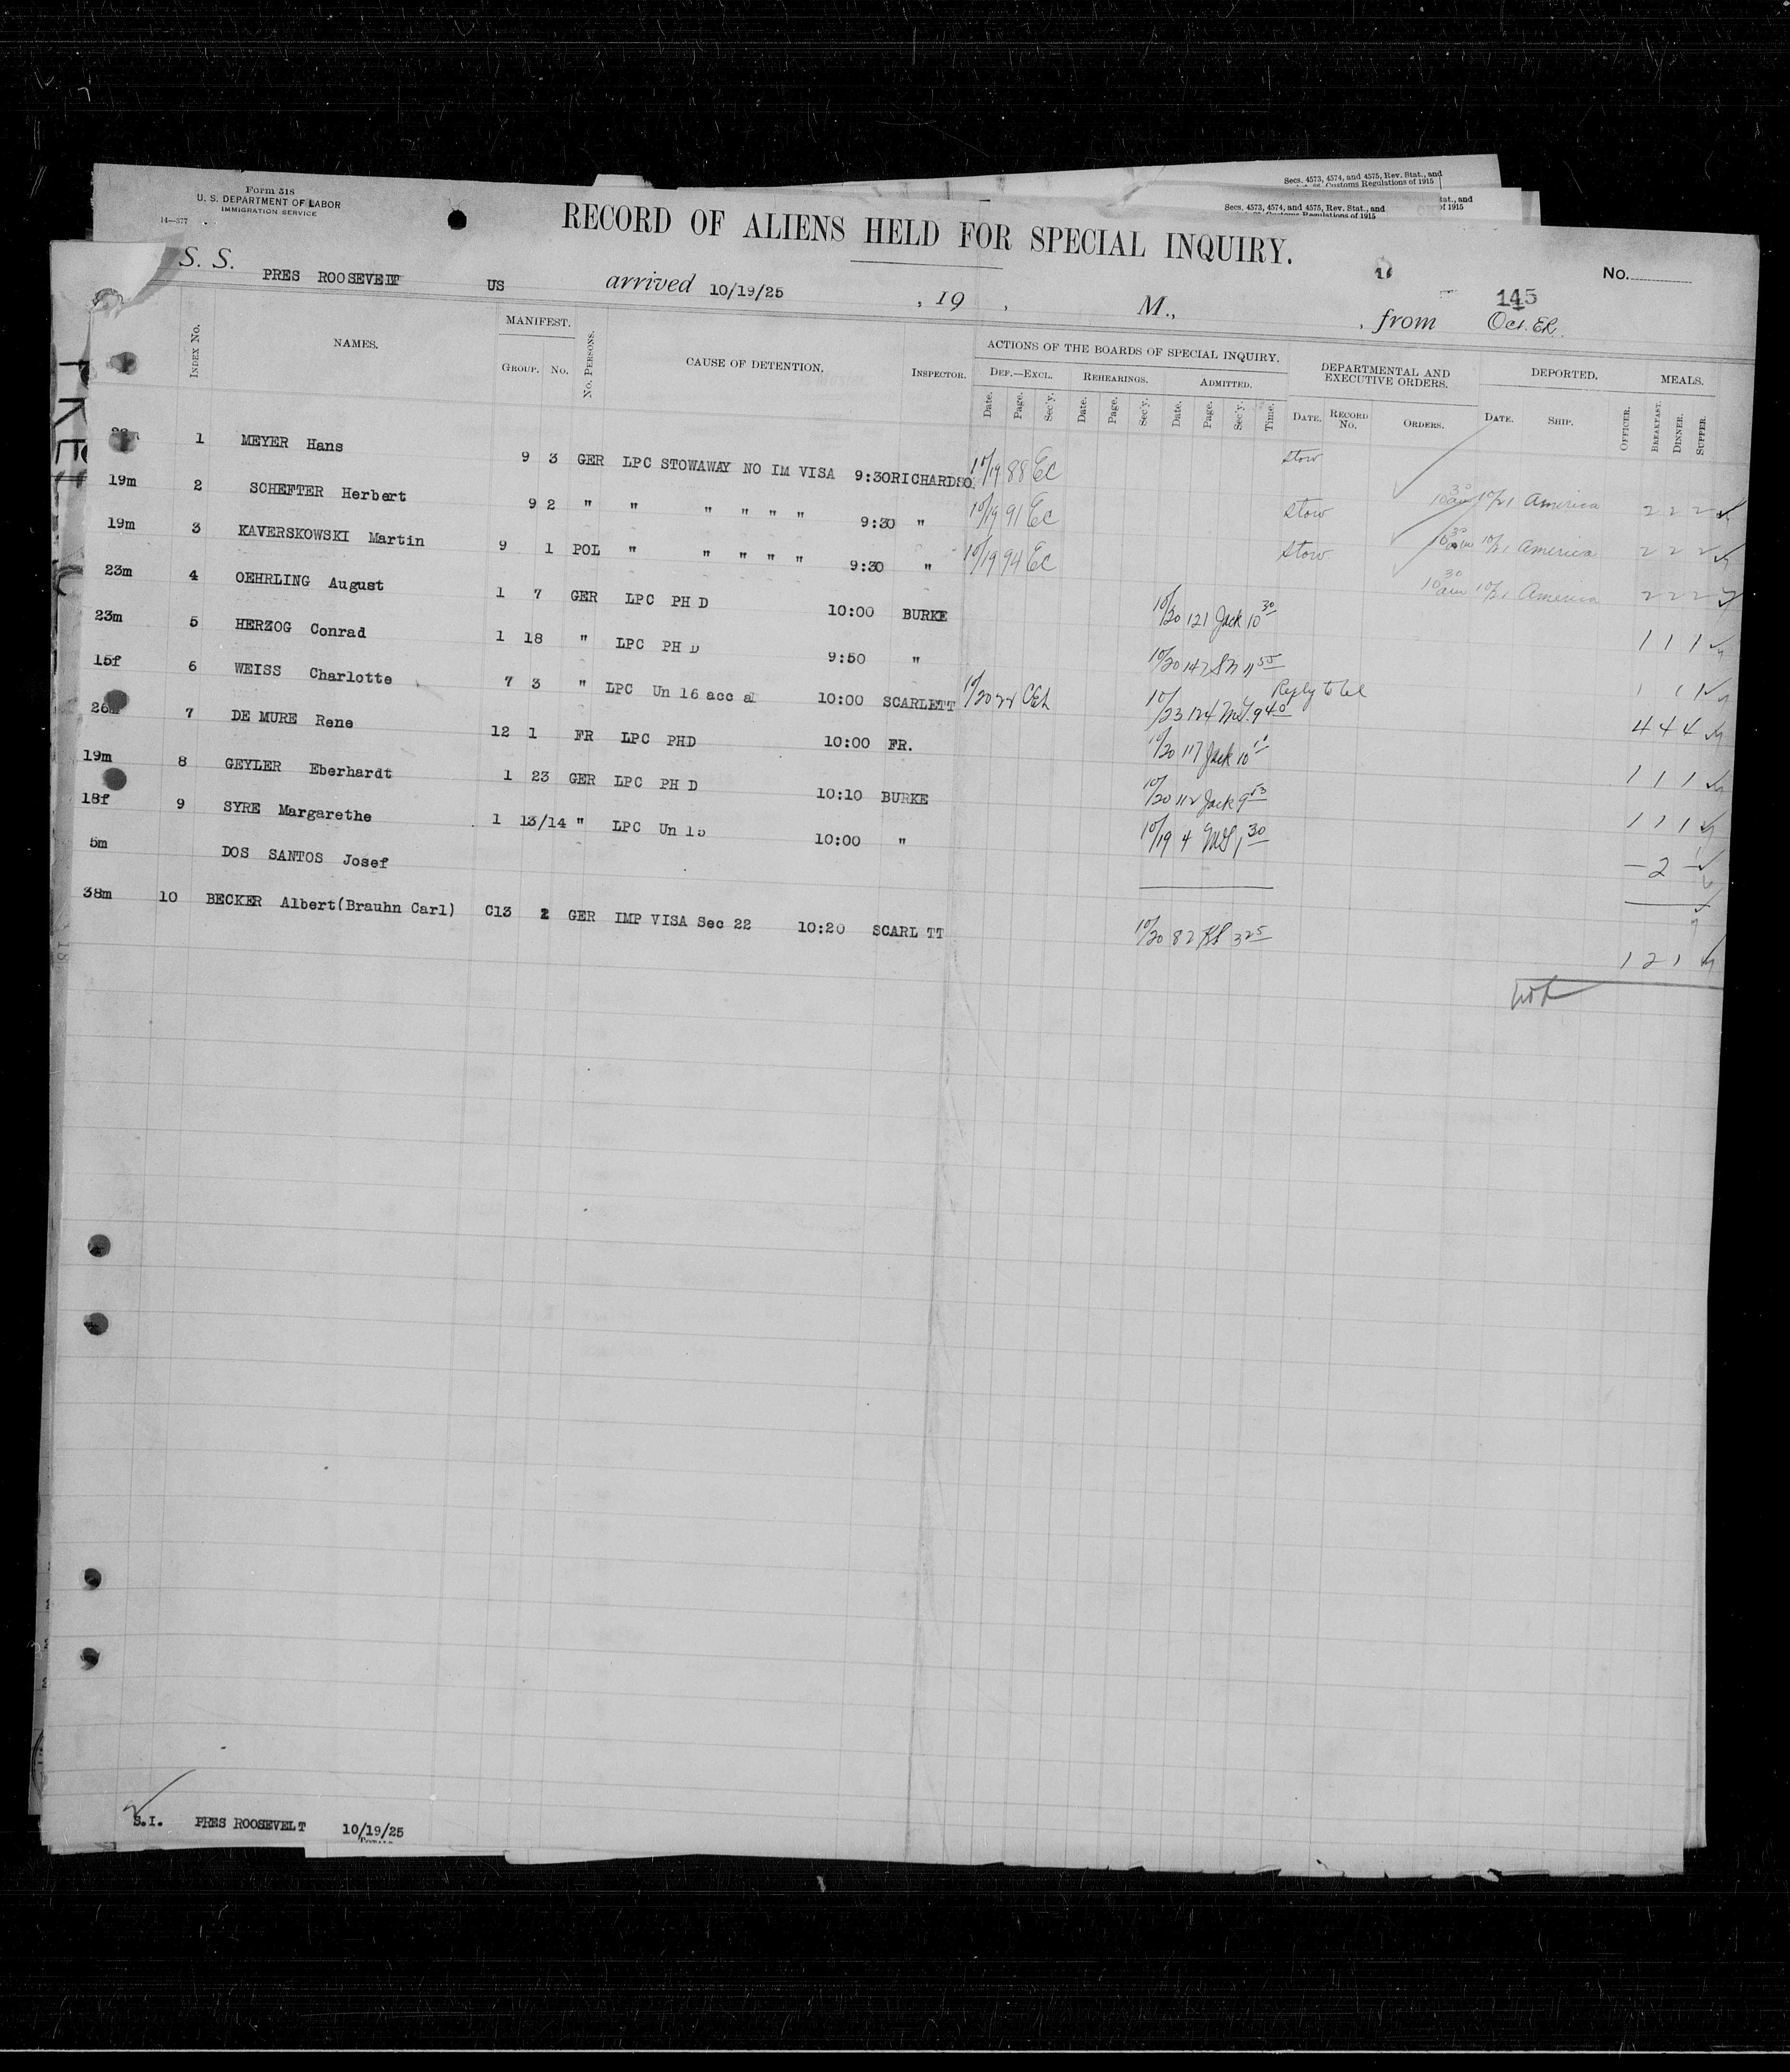 Secs. 4573, 4574, and 4575, Rev. Stat., and
Customs Regulations of 1915
Secs. 4573, 4574, and 4575, Rev. Stat., and
Customs Regulations of 1915
tat., and
of 1915
Form 518
U. S. DEPARTMENT OF LABOR
IMMIGRATION SERVICE
14—377
RECORD OF ALIENS HELD FOR SPECIAL INQUIRY.
No.
S. S. PRES ROOSEVELT US arrived 10/19/25 , 19 , M., , from 145
Oct. ER.
INDEX No. NAMES. MANIFEST. GROUP. No. No. PERSONS. CAUSE OF DETENTION. INSPECTOR. ACTIONS OF THE BOARDS OF SPECIAL INQUIRY. DEPARTMENTAL AND EXECUTIVE ORDERS. DEPORTED. MEALS.
DEF.—EXCL. REHEARINGS. ADMITTED.
Date. Page. Sec'y. Date. Page. Sec'y. Date. Page. Sec'y. Time. DATE. RECORD No. ORDERS. DATE. SHIP. OFFICER. BREAKFAST. DINNER. SUPPER.
1 MEYER Hans 9 3 GER LPC STOWAWAY NO IM VISA 9:30 RICHARDSO. 10/19 88 EC Stow 10 30 am 10/21 America 2 2 2
19m 2 SCHEFTER Herbert 9 2 " " " " " " 9:30 " 10/19 91 EC Stow 10 30 am 10/21 America 2 2 2
19m 3 KAVERSKOWSKI Martin 9 1 POL " " " " " 9:30 " 10/19 94 EC Stow 10 30 am 10/21 America 2 2 2
23m 4 OEHRLING August 1 7 GER LPC PH D 10:00 BURKE 10/20 121 Jack 10 30 1 1 1
23m 5 HERZOG Conrad 1 18 " LPC PH D 9:50 " 10/20 147 SN 11 55 1 1 1
15f 6 WEISS Charlotte 7 3 " LPC Un 16 acc al 10:00 SCARLETT 10/20 24 CEL 10/23 124 9 40 Reply to tel 4 4 4
26m 7 DE MURE Rene 12 1 FR LPC PHD 10:00 FR. 10/20 117 Jack 10 1 1 1
19m 8 GEYLER Eberhardt 1 23 GER LPC PH D 10:10 BURKE 10/20 112 Jack 9 53 1 1 1
18f 9 SYRE Margarethe 1 13/14 " LPC Un 15 10:00 " 10/19 4 1 30 — 2 —
5m DOS SANTOS Josef
38m 10 BECKER Albert(Brauhn Carl) C13 2 GER IMP VISA Sec 22 10:20 SCARL TT 10/20 82 3 25 1 2 1
S.I. PRES ROOSEVELT 10/19/25
TOTALS